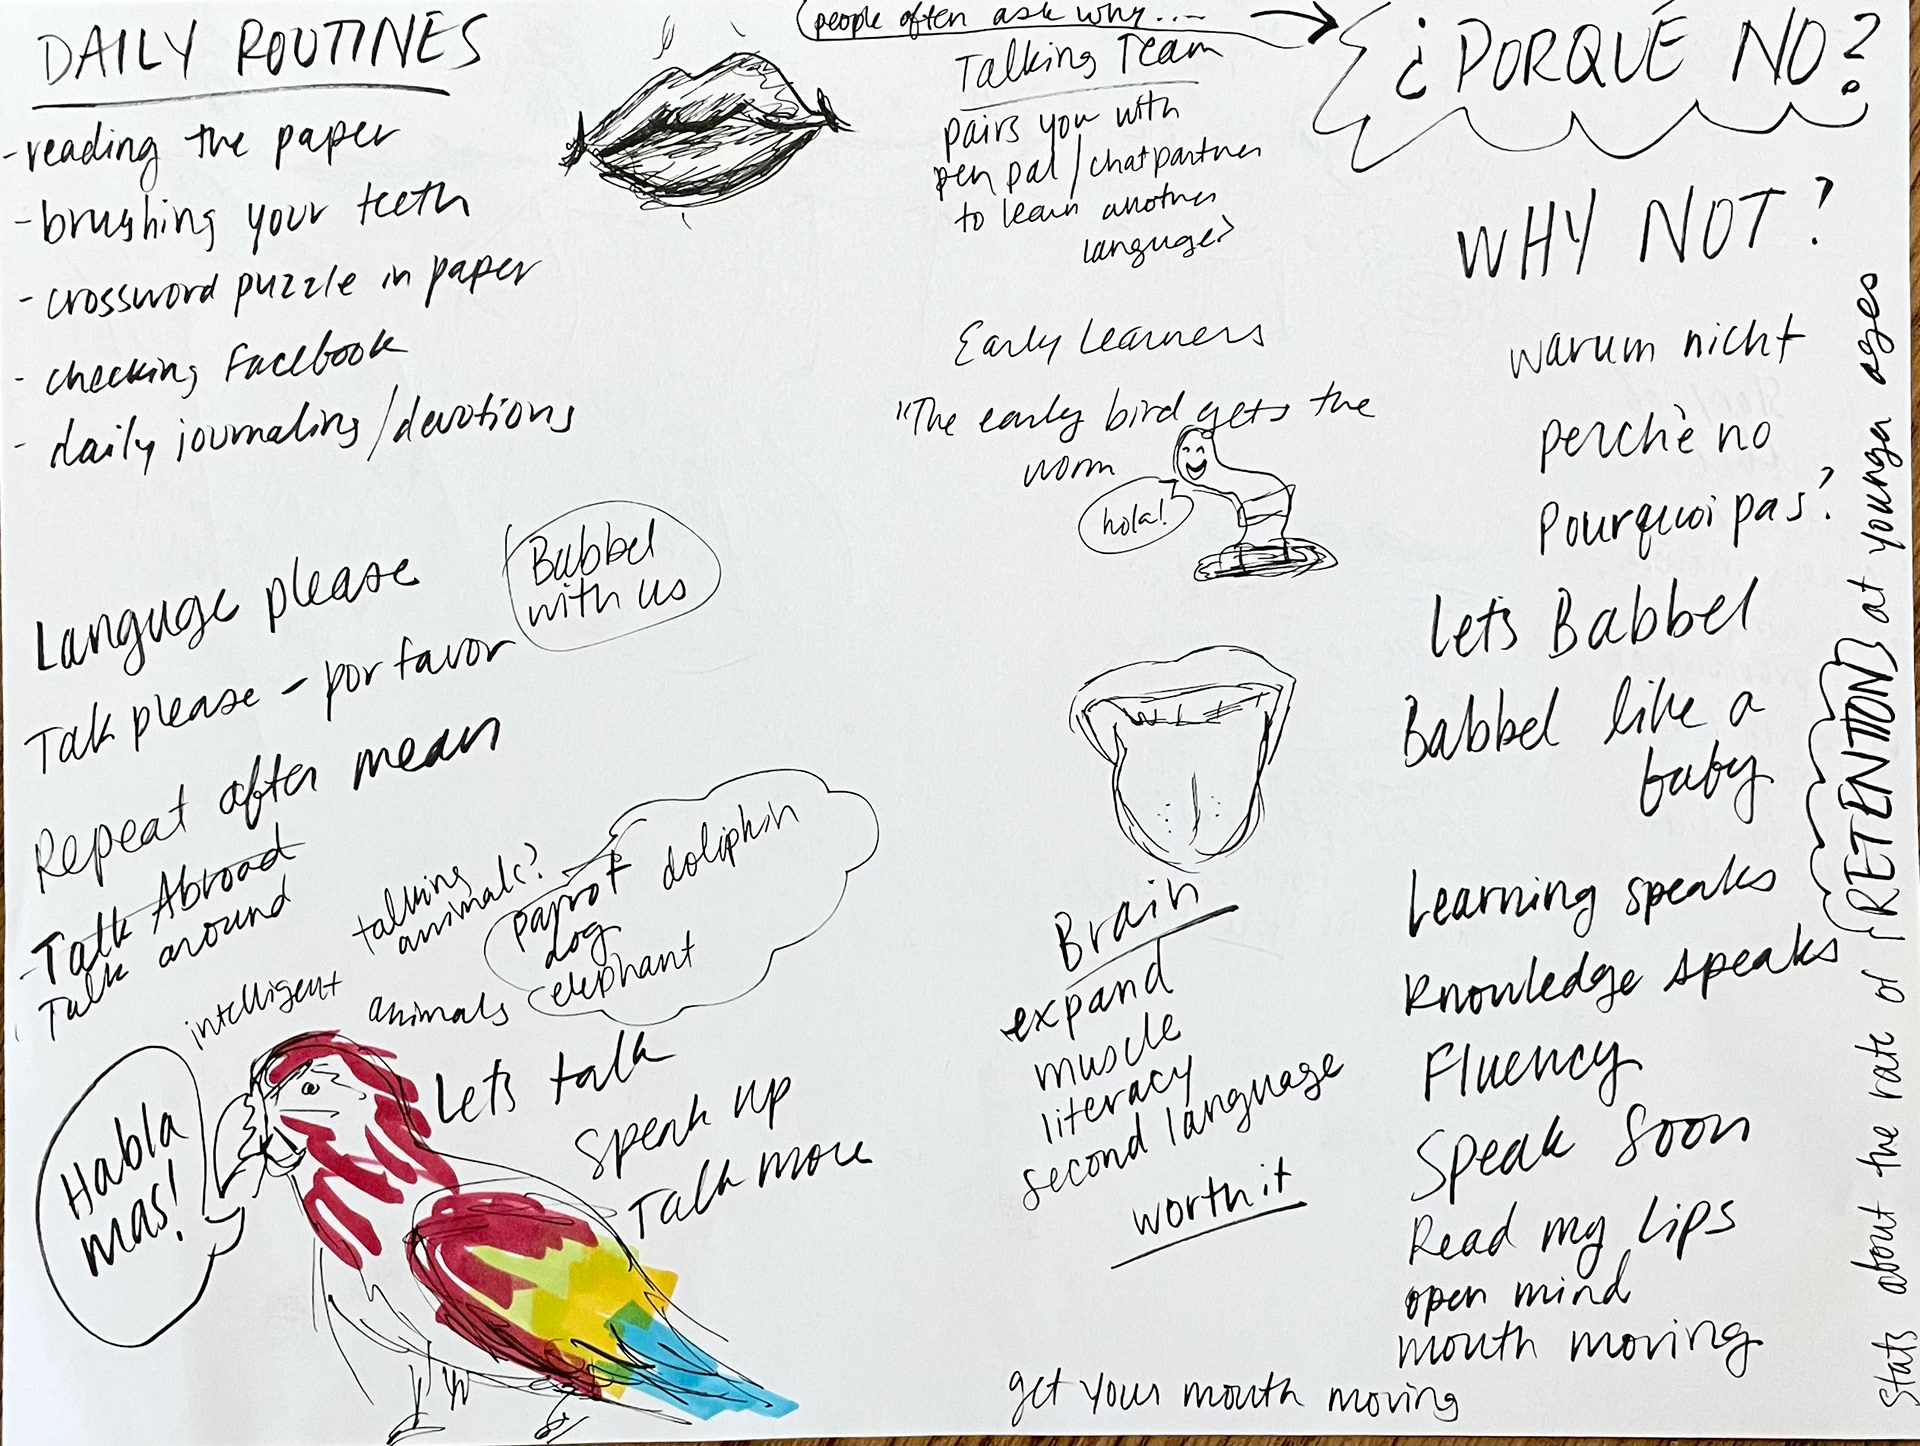 DAILY ROUTINES
- reading the paper
- brushing your teeth
- crossword puzzle in paper
- checking Facebook
- daily journaling/devotions
people often ask why....
Talking Team
pairs you with
pen pal/chat partner
to learn another
languge?
¿PORQUÉ NO?
WHY NOT?
warum nicht
perchè no
Pourquoi pas?
Early Learners
"The early bird gets the
worm
hola!
Languge please
Babbel
with us
Talk please - por favor
Repeat after mean
- Talk Abroad
Talk around
talking
animals?
parrot doliphin
dog
elephant
intelligent animals
Habla
mas!
Lets talk
Speak up
Talk more
Brain
expand
muscle
literacy
second language
worth it
get your mouth moving
Lets Babbel
Babbel like a
baby
Learning speaks
Knowledge speaks
Fluency
Speak Soon
Read my Lips
open mind
mouth moving
Stats about the rate of RETENTION at younga ages